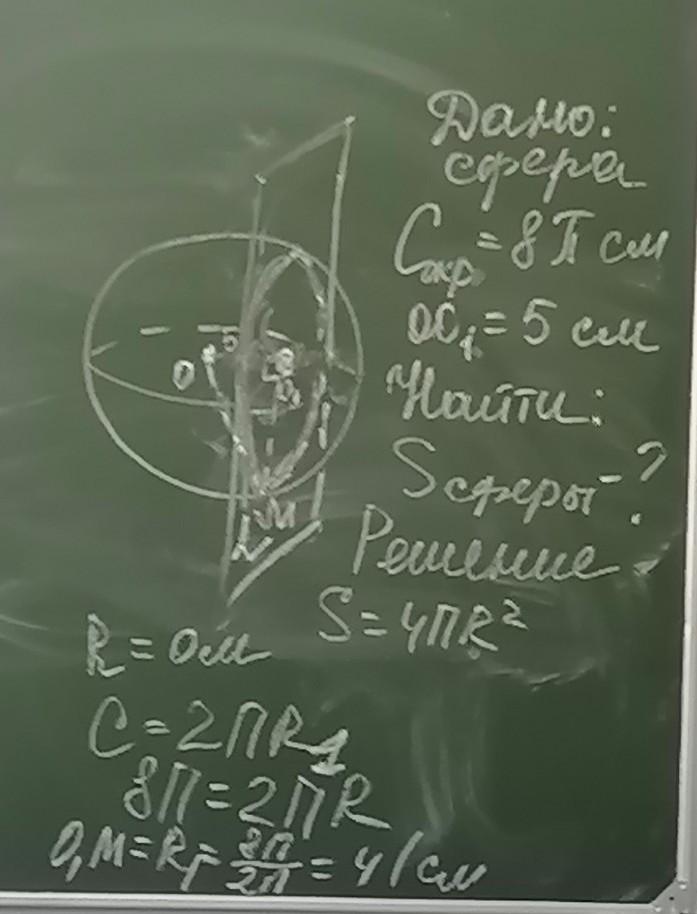 Дано:
сфера
Cокр. = 8π см
OO₁ = 5 см
Найти:
Sсферы - ?
Решение.
S = 4πR²
O
5
M
R = OM
C = 2πR₁
8π = 2πR
O₁M = R₁ = 8π/2π = 4 (см